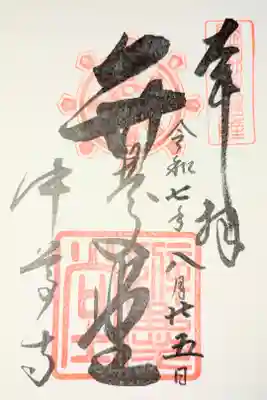 奉拝
令和七年八月廿五日
弁慶堂
中尊寺